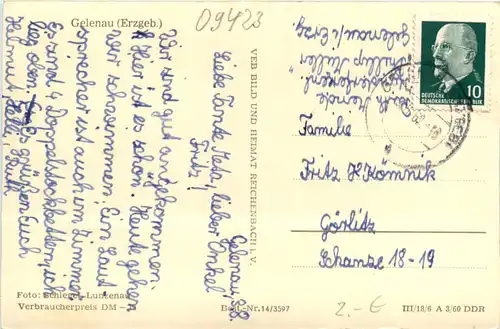 Gelenau (Erzgeb.)
09423
Gelenau, 3.8.
Liebe Tante Meta, lieber Onkel
Fritz!
Wir sind gut angekommen.
Hier ist es schön. Heute gehen
wir schwimmen. Ein Laut
sprecher ist auch im Zimmer.
Es sind 4 Doppelstockbetten, ich
lieg oben. Es grüßen Euch
Helmut
VEB BILD UND HEIMAT REICHENBACH i. V.
Gelenau/Erzg.
DEUTSCHE
DEMOKRATISCHE REPUBLIK
10
Familie
Fritz H. Kömnik
Görlitz
Schanze 18-19
Foto: Schlegel-Lunzenau
Verbraucherpreis DM
Best.-Nr. 14/3597
2.-€
III/18/6 A 3/60 DDR